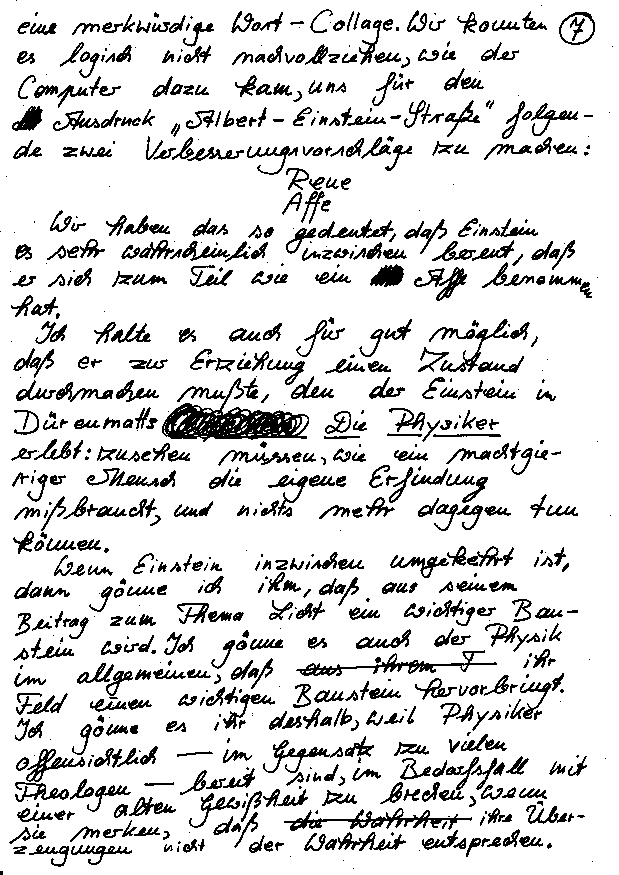 eine merkwürdige Wort-Collage. Wir konnten 7
es logisch nicht nachvollziehen, wie der
Computer dazu kam, uns für den
Ausdruck „Albert-Einstein-Straße" folgen-
de zwei Verbesserungsvorschläge zu machen:
Reue
Affe
Wir haben das so gedeutet, daß Einstein
es sehr wahrscheinlich inzwischen bereut, daß
er sich zum Teil wie ein Affe benommen
hat.
Ich halte es auch für gut möglich,
daß er zur Erziehung einen Zustand
durchmachen mußte, den der Einstein in
Dürenmatts Die Physiker
erlebt: zusehen müssen, wie ein machtgie-
riger Mensch die eigene Erfindung
mißbraucht, und nichts mehr dagegen tun
können.
Wenn Einstein inzwischen umgekehrt ist,
dann gönne ich ihm, daß aus seinem
Beitrag zum Thema Licht ein wichtiger Bau-
stein wird. Ich gönne es auch der Physik
im allgemeinen, daß aus ihrem T ihr
Feld einen wichtigen Baustein hervorbringt.
Ich gönne es ihr deshalb, weil Physiker
offensichtlich — im Gegensatz zu vielen
Theologen — bereit sind, im Bedarfsfall mit
einer alten Gewißheit zu brechen, wenn
sie merken, daß die Wahrheit ihre Über-
zeugungen nicht der Wahrheit entsprechen.